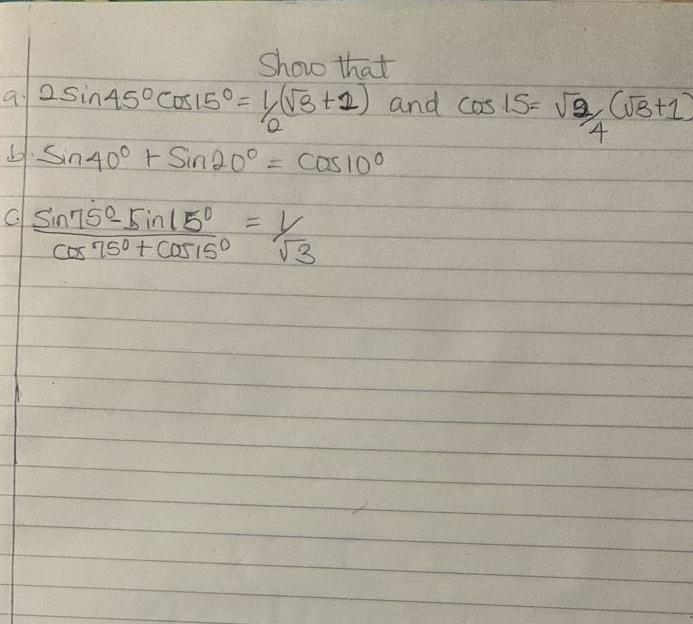 Show that
a. 2Sin45° Cos15° = 1/2(√3+1) and cos 15 = √2/4(√3+1)
b. Sin40° + Sin20° = Cos10°
c. Sin75° - Sin15° / cos 75° + Cos15° = 1/√3